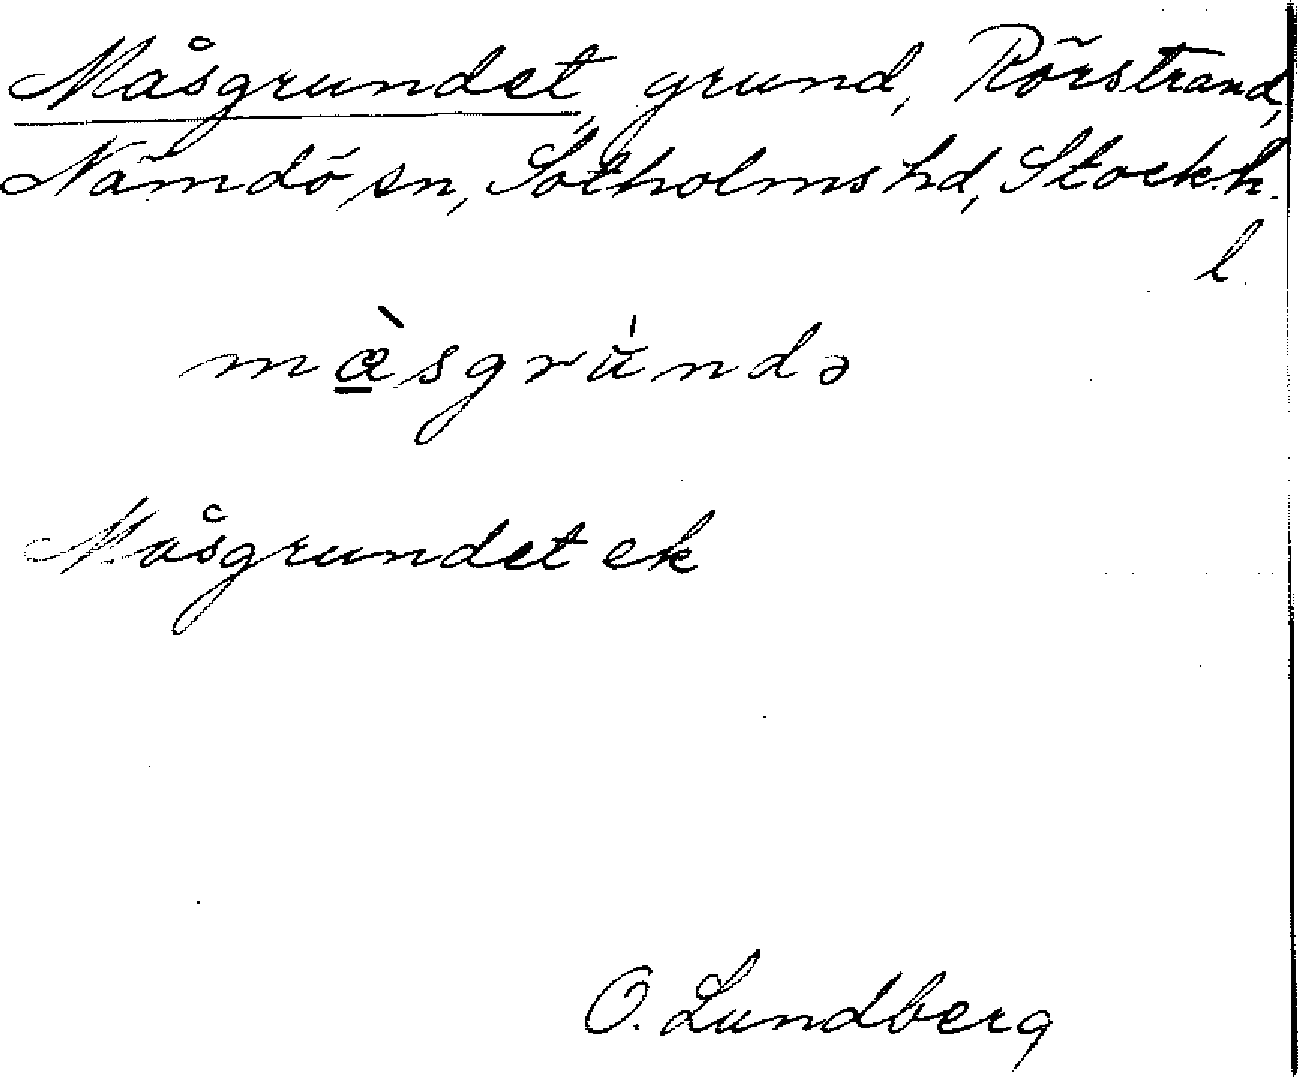 Måsgrundet, grund, Rörstrand,
Nämdö sn, Sotholms hd, Stockh.
l
Måsgrundet ek
O. Lundberg